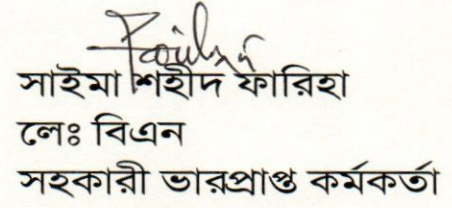 সাইমা শহীদ ফারিহা
লেঃ বিএন
সহকারী ভারপ্রাপ্ত কর্মকর্তা